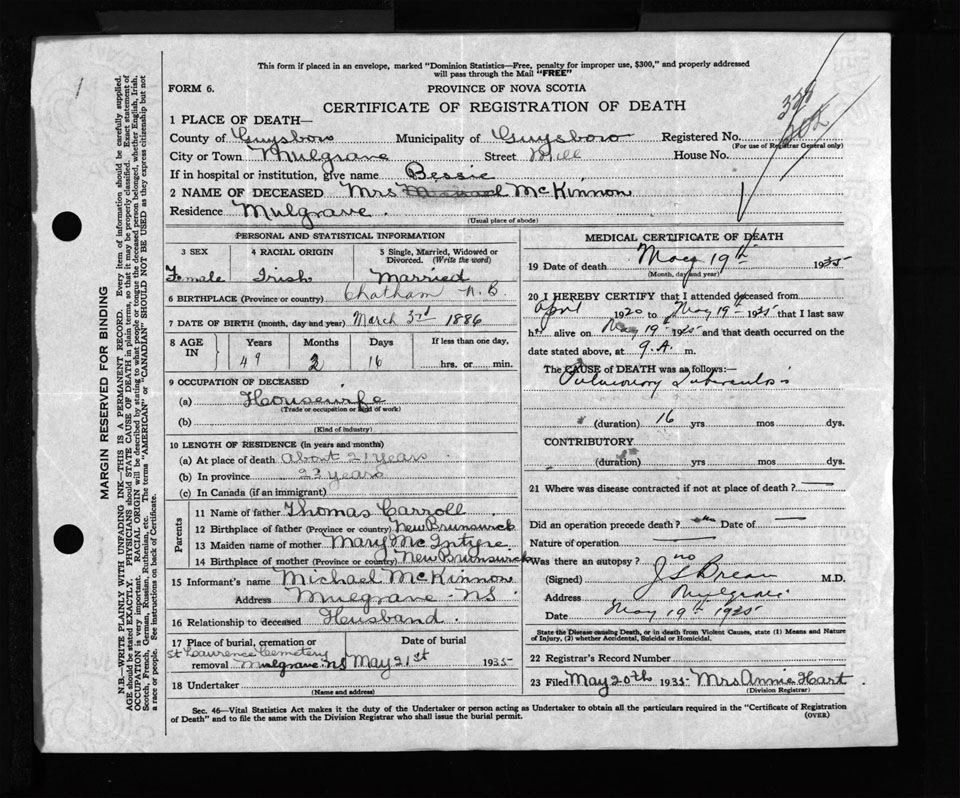 This form if placed in an envelope, marked "Dominion Statistics—Free, penalty for improper use, $300," and properly addressed
will pass through the Mail "FREE"
FORM 6.
PROVINCE OF NOVA SCOTIA
CERTIFICATE OF REGISTRATION OF DEATH
1 PLACE OF DEATH—
County of Guysboro Municipality of Guysboro Registered No.
(For use of Registrar General only)
City or Town Mulgrave Street Mill House No.
If in hospital or institution, give name Bessie
2 NAME OF DECEASED Mrs Michael McKinnon
Residence Mulgrave.
(Usual place of abode)
PERSONAL AND STATISTICAL INFORMATION
3 SEX 4 RACIAL ORIGIN 5 Single, Married, Widowed or Divorced. (Write the word)
Female Irish Married
6 BIRTHPLACE (Province or country) Chatham N.B.
7 DATE OF BIRTH (month, day and year) March 3rd 1886
8 AGE IN Years Months Days If less than one day,
49 2 16 hrs. or min.
9 OCCUPATION OF DECEASED
(a) Housewife
(Trade or occupation or kind of work)
(b)
(Kind of industry)
10 LENGTH OF RESIDENCE (in years and months)
(a) At place of death About 21 years
(b) In province 23 years
(c) In Canada (if an immigrant)
Parents
11 Name of father Thomas Carroll
12 Birthplace of father (Province or country) New Brunswick
13 Maiden name of mother Mary McIntyre
14 Birthplace of mother (Province or country) New Brunswick
15 Informant's name Michael McKinnon
Address Mulgrave NS
16 Relationship to deceased Husband.
17 Place of burial, cremation or removal Date of burial
St Laurence Cemetery
Mulgrave NS May 21st 1935
18 Undertaker
(Name and address)
MEDICAL CERTIFICATE OF DEATH
19 Date of death May 19th 1935
(Month, day and year)
20 I HEREBY CERTIFY that I attended deceased from
April 1920 to May 19th 1935 that I last saw
h alive on May 19th 1935 and that death occurred on
date stated above, at 9.A. m.
The CAUSE OF DEATH was as follows:
Pulmonary Tuberculosis
(duration) 16 yrs mos dys.
CONTRIBUTORY
(duration) yrs mos dys.
21 Where was disease contracted if not at place of death? —
Did an operation precede death? Date of —
Nature of operation —
Was there an autopsy? no
(Signed) M.D.
Address Mulgrave
Date May 19th 1935
State the Disease causing Death, or in death from Violent Causes, state (1) Means and Nature
of Injury, (2) whether Accidental, Suicidal or Homicidal.
22 Registrar's Record Number
23 Filed May 20th 1935 Mrs Annie Hart
(Division Registrar)
Sec. 46—Vital Statistics Act makes it the duty of the Undertaker or person acting as Undertaker to obtain all the particulars required in the "Certificate of Registration
of Death" and to file the same with the Division Registrar who shall issue the burial permit.
(OVER)
MARGIN RESERVED FOR BINDING
N.B.—WRITE PLAINLY WITH UNFADING INK—THIS IS A PERMANENT RECORD. Every item of information should be carefully supplied.
AGE should be stated EXACTLY. PHYSICIANS should STATE CAUSE OF DEATH in plain terms, so that it may be properly classified. Exact statement of
OCCUPATION is very important. RACIAL ORIGIN will be described by stating to what people or tongue the deceased person belonged, whether English, Irish,
Scotch, French, German, Russian, Ruthenian, etc. The terms "AMERICAN" or "CANADIAN" SHOULD NOT BE USED as they express citizenship but not
a race or people. See instructions on back of Certificate.